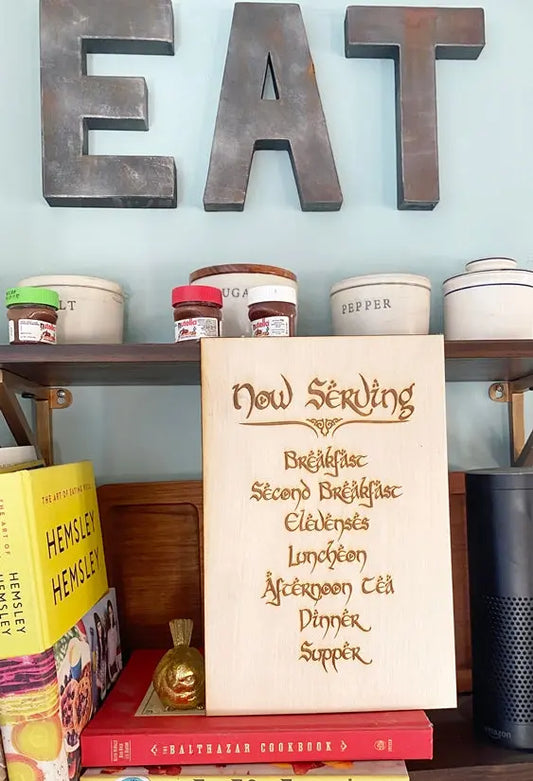 EAT
LT
UGA
PEPPER
nutella
nutella
nutella
Now Serving
Breakfast
Second Breakfast
Elevenses
Luncheon
Afternoon Tea
Dinner
Supper
THE ART OF EATING WELL
HEMSLEY
HEMSLEY
THE ART OF
HEMSLEY
HEMSLEY
amazon
THE BALTHAZAR COOKBOOK